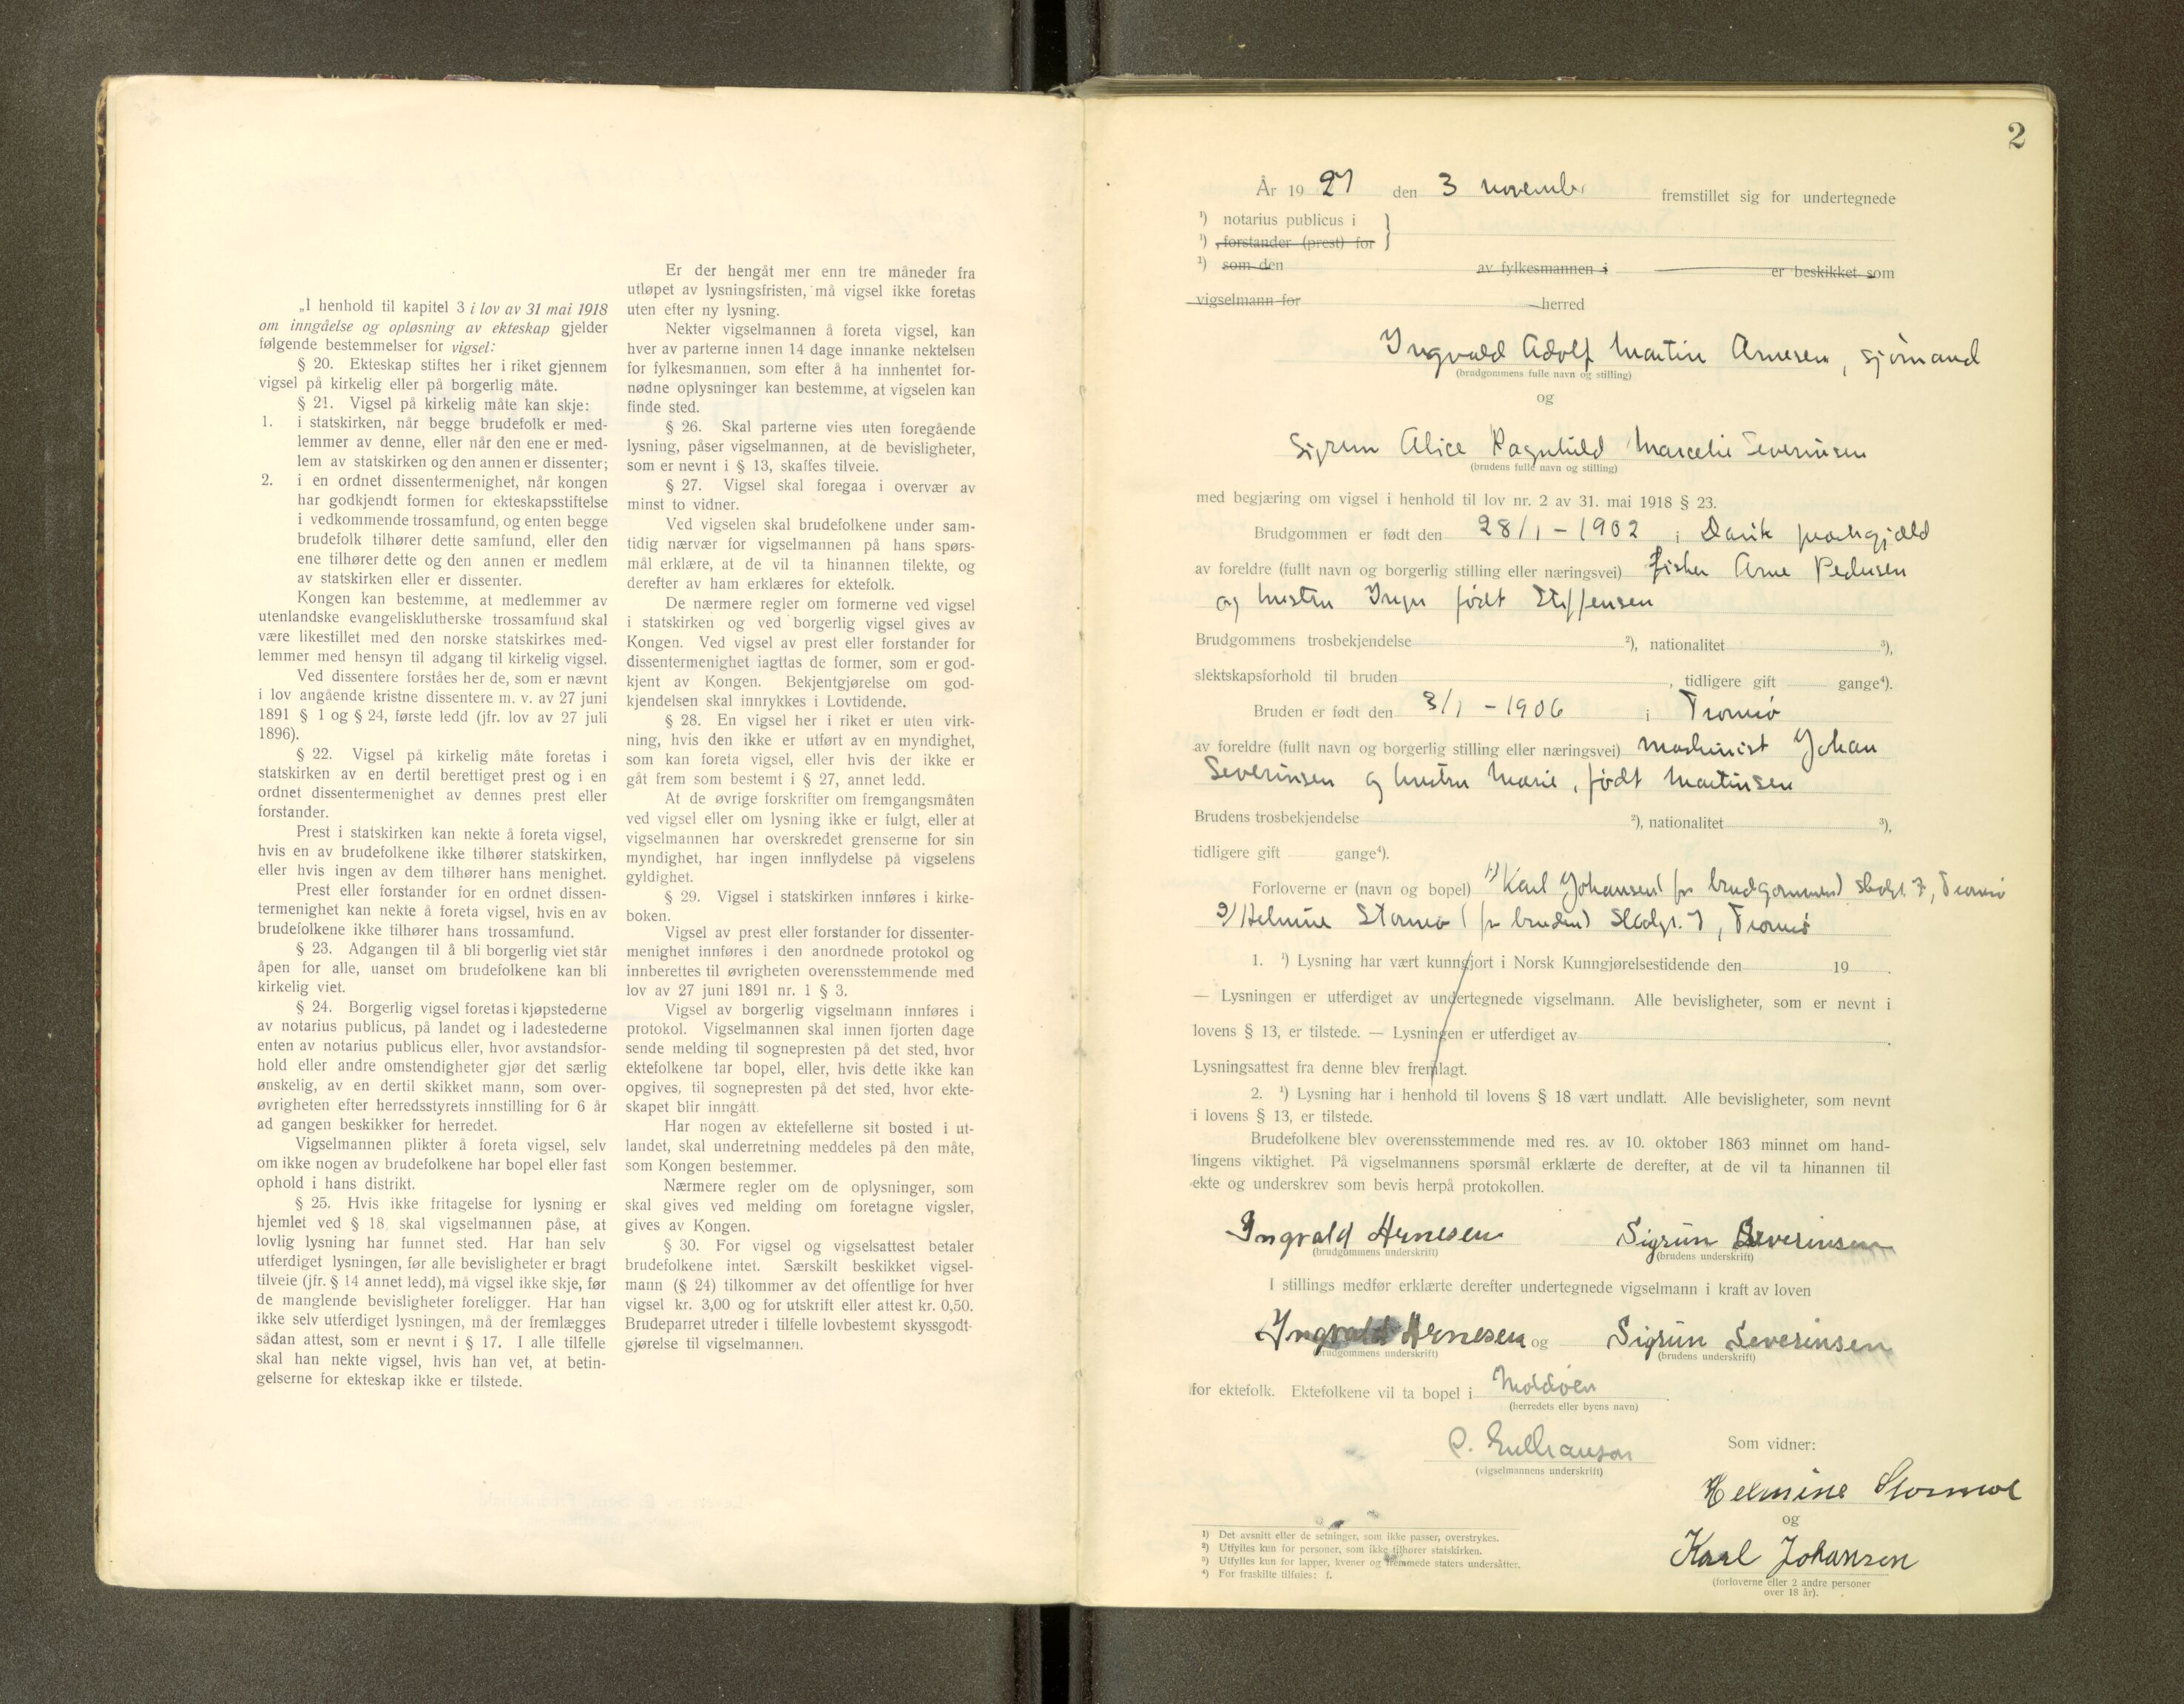 „I henhold til kapitel 3 i lov av 31 mai 1918
om inngåelse og opløsning av ekteskap gjelder
følgende bestemmelser for vigsel:
§ 20. Ekteskap stiftes her i riket gjennem
vigsel på kirkelig eller på borgerlig måte.
§ 21. Vigsel på kirkelig måte kan skje:
1. i statskirken, når begge brudefolk er med-
lemmer av denne, eller når den ene er med-
lem av statskirken og den annen er dissenter;
2. i en ordnet dissentermenighet, når kongen
har godkjendt formen for ekteskapsstiftelse
i vedkommende trossamfund, og enten begge
brudefolk tilhører dette samfund, eller den
ene tilhører dette og den annen er medlem
av statskirken eller er dissenter.
Kongen kan bestemme, at medlemmer av
utenlandske evangelisklutherske trossamfund skal
være likestillet med den norske statskirkes med-
lemmer med hensyn til adgang til kirkelig vigsel.
Ved dissentere forståes her de, som er nævnt
i lov angående kristne dissentere m. v. av 27 juni
1891 § 1 og § 24, første ledd (jfr. lov av 27 juli
1896).
§ 22. Vigsel på kirkelig måte foretas i
statskirken av en dertil berettiget prest og i en
ordnet dissentermenighet av dennes prest eller
forstander.
Prest i statskirken kan nekte å foreta vigsel,
hvis en av brudefolkene ikke tilhører statskirken,
eller hvis ingen av dem tilhører hans menighet.
Prest eller forstander for en ordnet dissen-
termenighet kan nekte å foreta vigsel, hvis en av
brudefolkene ikke tilhører hans trossamfund.
§ 23. Adgangen til å bli borgerlig viet står
åpen for alle, uanset om brudefolkene kan bli
kirkelig viet.
§ 24. Borgerlig vigsel foretas i kjøpstederne
av notarius publicus, på landet og i ladestederne
enten av notarius publicus eller, hvor avstandsfor-
hold eller andre omstendigheter gjør det særlig
ønskelig, av en dertil skikket mann, som over-
øvrigheten efter herredsstyrets innstilling for 6 år
ad gangen beskikker for herredet.
Vigselmannen plikter å foreta vigsel, selv
om ikke nogen av brudefolkene har bopel eller fast
ophold i hans distrikt.
§ 25. Hvis ikke fritagelse for lysning er
hjemlet ved § 18, skal vigselmannen påse, at
lovlig lysning har funnet sted. Har han selv
utferdiget lysningen, før alle bevisligheter er bragt
tilveie (jfr. § 14 annet ledd), må vigsel ikke skje, før
de manglende bevisligheter foreligger. Har han
ikke selv utferdiget lysningen, må der fremlægges
sådan attest, som er nevnt i § 17. I alle tilfelle
skal han nekte vigsel, hvis han vet, at betin-
gelserne for ekteskap ikke er tilstede.
Er der hengåt mer enn tre måneder fra
utløpet av lysningsfristen, må vigsel ikke foretas
uten efter ny lysning.
Nekter vigselmannen å foreta vigsel, kan
hver av parterne innen 14 dage innanke nektelsen
for fylkesmannen, som efter å ha innhentet for-
nødne oplysninger kan bestemme, at vigselen kan
finde sted.
§ 26. Skal parterne vies uten foregående
lysning, påser vigselmannen, at de bevisligheter,
som er nevnt i § 13, skaffes tilveie.
§ 27. Vigsel skal foregaa i overvær av
minst to vidner.
Ved vigselen skal brudefolkene under sam-
tidig nærvær for vigselmannen på hans spørs-
mål erklære, at de vil ta hinannen tilekte, og
derefter av ham erklæres for ektefolk.
De nærmere regler om formerne ved vigsel
i statskirken og ved borgerlig vigsel gives av
Kongen. Ved vigsel av prest eller forstander for
dissentermenighet iagttas de former, som er god-
kjent av Kongen. Bekjentgjørelse om god-
kjendelsen skal innrykkes i Lovtidende.
§ 28. En vigsel her i riket er uten virk-
ning, hvis den ikke er utført av en myndighet,
som kan foreta vigsel, eller hvis der ikke er
gåt frem som bestemt i § 27, annet ledd.
At de øvrige forskrifter om fremgangsmåten
ved vigsel eller om lysning ikke er fulgt, eller at
vigselmannen har overskredet grenserne for sin
myndighet, har ingen innflydelse på vigselens
gyldighet.
§ 29. Vigsel i statskirken innføres i kirke-
boken.
Vigsel av prest eller forstander for dissenter-
menighet innføres i den anordnede protokol og
innberettes til øvrigheten overensstemmende med
lov av 27 juni 1891 nr. 1 § 3.
Vigsel av borgerlig vigselmann innføres i
protokol. Vigselmannen skal innen fjorten dage
sende melding til sognepresten på det sted, hvor
ektefolkene tar bopel, eller, hvis dette ikke kan
opgives, til sognepresten på det sted, hvor ekte-
skapet blir inngått.
Har nogen av ektefellerne sit bosted i ut-
landet, skal underretning meddeles på den måte,
som Kongen bestemmer.
Nærmere regler om de oplysninger, som
skal gives ved melding om foretagne vigsler,
gives av Kongen.
§ 30. For vigsel og vigselsattest betaler
brudefolkene intet. Særskilt beskikket vigsel-
mann (§ 24) tilkommer av det offentlige for hver
vigsel kr. 3,00 og for utskrift eller attest kr. 0,50.
Brudeparret utreder i tilfelle lovbestemt skyssgodt-
gjørelse til vigselmannen.
2
År 1927 den 3 november fremstillet sig for undertegnede
¹) notarius publicus i
¹) forstander (prest) for
¹) som den av fylkesmannen i er beskikket som
vigselmann for herred
Ingvald Adolf Martin Arnesen, sjömand
(brudgommens fulle navn og stilling)
og
Sigrun Alice Ragnhild Marcelie Severinsen
(brudens fulle navn og stilling)
med begjæring om vigsel i henhold til lov nr. 2 av 31. mai 1918 § 23.
Brudgommen er født den 28/1 - 1902 i prestegjæld
av foreldre (fullt navn og borgerlig stilling eller næringsvei) fisker Arne Pedersen
og hustru født Steffensen
Brudgommens trosbekjendelse ²), nationalitet ³),
slektskapsforhold til bruden , tidligere gift gange⁴).
Bruden er født den 3/1 - 1906 i Tromsö
av foreldre (fullt navn og borgerlig stilling eller næringsvei) maskinist Johan
Severinsen og hustru Marie, født Martinsen
Brudens trosbekjendelse ²), nationalitet ³),
tidligere gift gange⁴).
Forloverne er (navn og bopel) 1) Karl Johansen (for brudgommen) 7, Tromsö
2) Helmine Stormo (for bruden) 7, Tromsö
1. ¹) Lysning har vært kunngjort i Norsk Kunngjørelsestidende den 19 .
— Lysningen er utferdiget av undertegnede vigselmann. Alle bevisligheter, som er nevnt i
lovens § 13, er tilstede. — Lysningen er utferdiget av .
Lysningsattest fra denne blev fremlagt.
2. ¹) Lysning har i henhold til lovens § 18 vært undlatt. Alle bevisligheter, som nevnt
i lovens § 13, er tilstede.
Brudefolkene blev overensstemmende med res. av 10. oktober 1863 minnet om hand-
lingens viktighet. På vigselmannens spørsmål erklærte de derefter, at de vil ta hinannen til
ekte og underskrev som bevis herpå protokollen.
Ingvald Arnesen Sigrun Severinsen
(brudgommens underskrift) (brudens underskrift)
I stillings medfør erklærte derefter undertegnede vigselmann i kraft av loven
Ingvald Arnesen og Sigrun Severinsen
(brudgommens underskrift) (brudens underskrift)
for ektefolk. Ektefolkene vil ta bopel i .
(herredets eller byens navn)
(vigselmannens underskrift)
Som vidner:
Helmine Stormo
og
Karl Johansen
(forloverne eller 2 andre personer
over 18 år).
¹) Det avsnitt eller de setninger, som ikke passer, overstrykes.
²) Utfylles kun for personer, som ikke tilhører statskirken.
³) Utfylles kun for lapper, kvener og fremmede staters undersåtter.
⁴) For fraskilte tilføies: f.